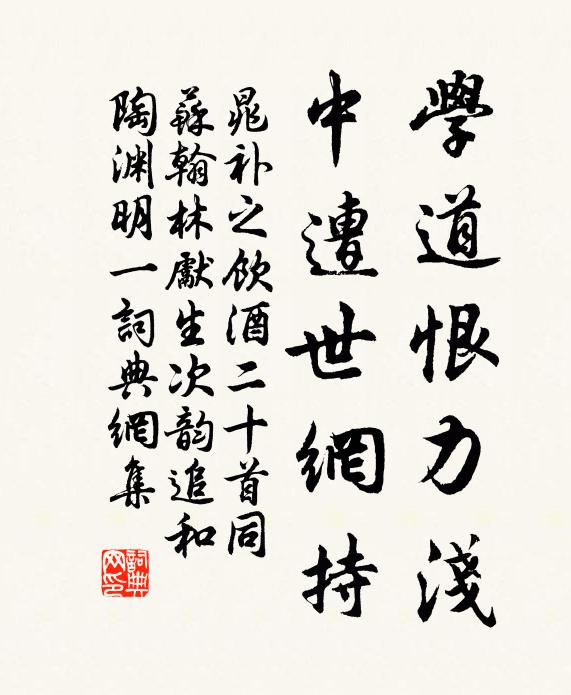 學道恨力淺
中遭世網持
晁补之飲酒二十首同
蘇翰林獻生次韵追和
陶渊明一詞典網集
詞典
网印